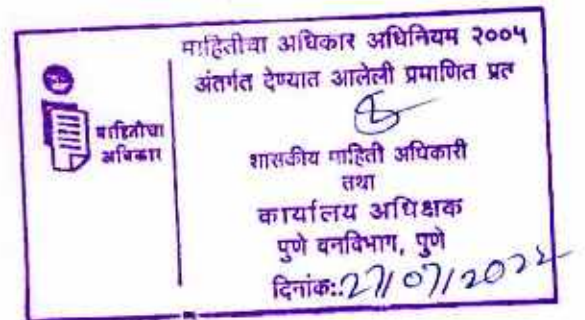 माहितीचा अधिकार अधिनियम २००५
अंतर्गत देण्यात आलेली प्रमाणित प्रत
माहितीचा
अधिकार
शासकीय माहिती अधिकारी
तथा
कार्यालय अधिक्षक
पुणे वनविभाग, पुणे
दिनांक:27/07/2022